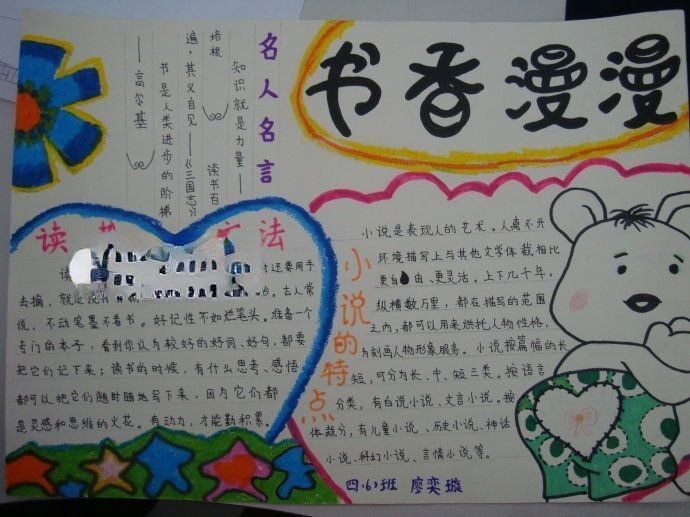 书香漫漫
名人名言
知识就是力量——
培根 读书百
遍,其义自见——《三国志》
书是人类进步的阶梯
——高尔基
读 法
读 还要用手
去摘,就 古人常
说,不动笔墨不看书。好记性不如烂笔头。准备一个
专门的本子,看到你认为较好的好词、好句,都要
把它们记下来;读书的时候,有什么思考、感悟
都可以把它们随时随地写下来,因为它们都
是灵感和思维的火花。有动力,才能勤积累。
小说的特点
小说是表现人的艺术。人离不开
环境描写上与其他文学体裁相比
更自由、更灵活。上下几千年,
纵横数万里,都在描写的范围
之内,都可以用来烘托人物性格,
为刻画人物形象服务。小说按篇幅的长
短,可分为长、中、短三类。按语言
分类,有白说小说、文言小说。按
体裁分,有儿童小说、历史小说、神话
小说、科幻小说、言情小说等。
四(6)班 廖奕璇